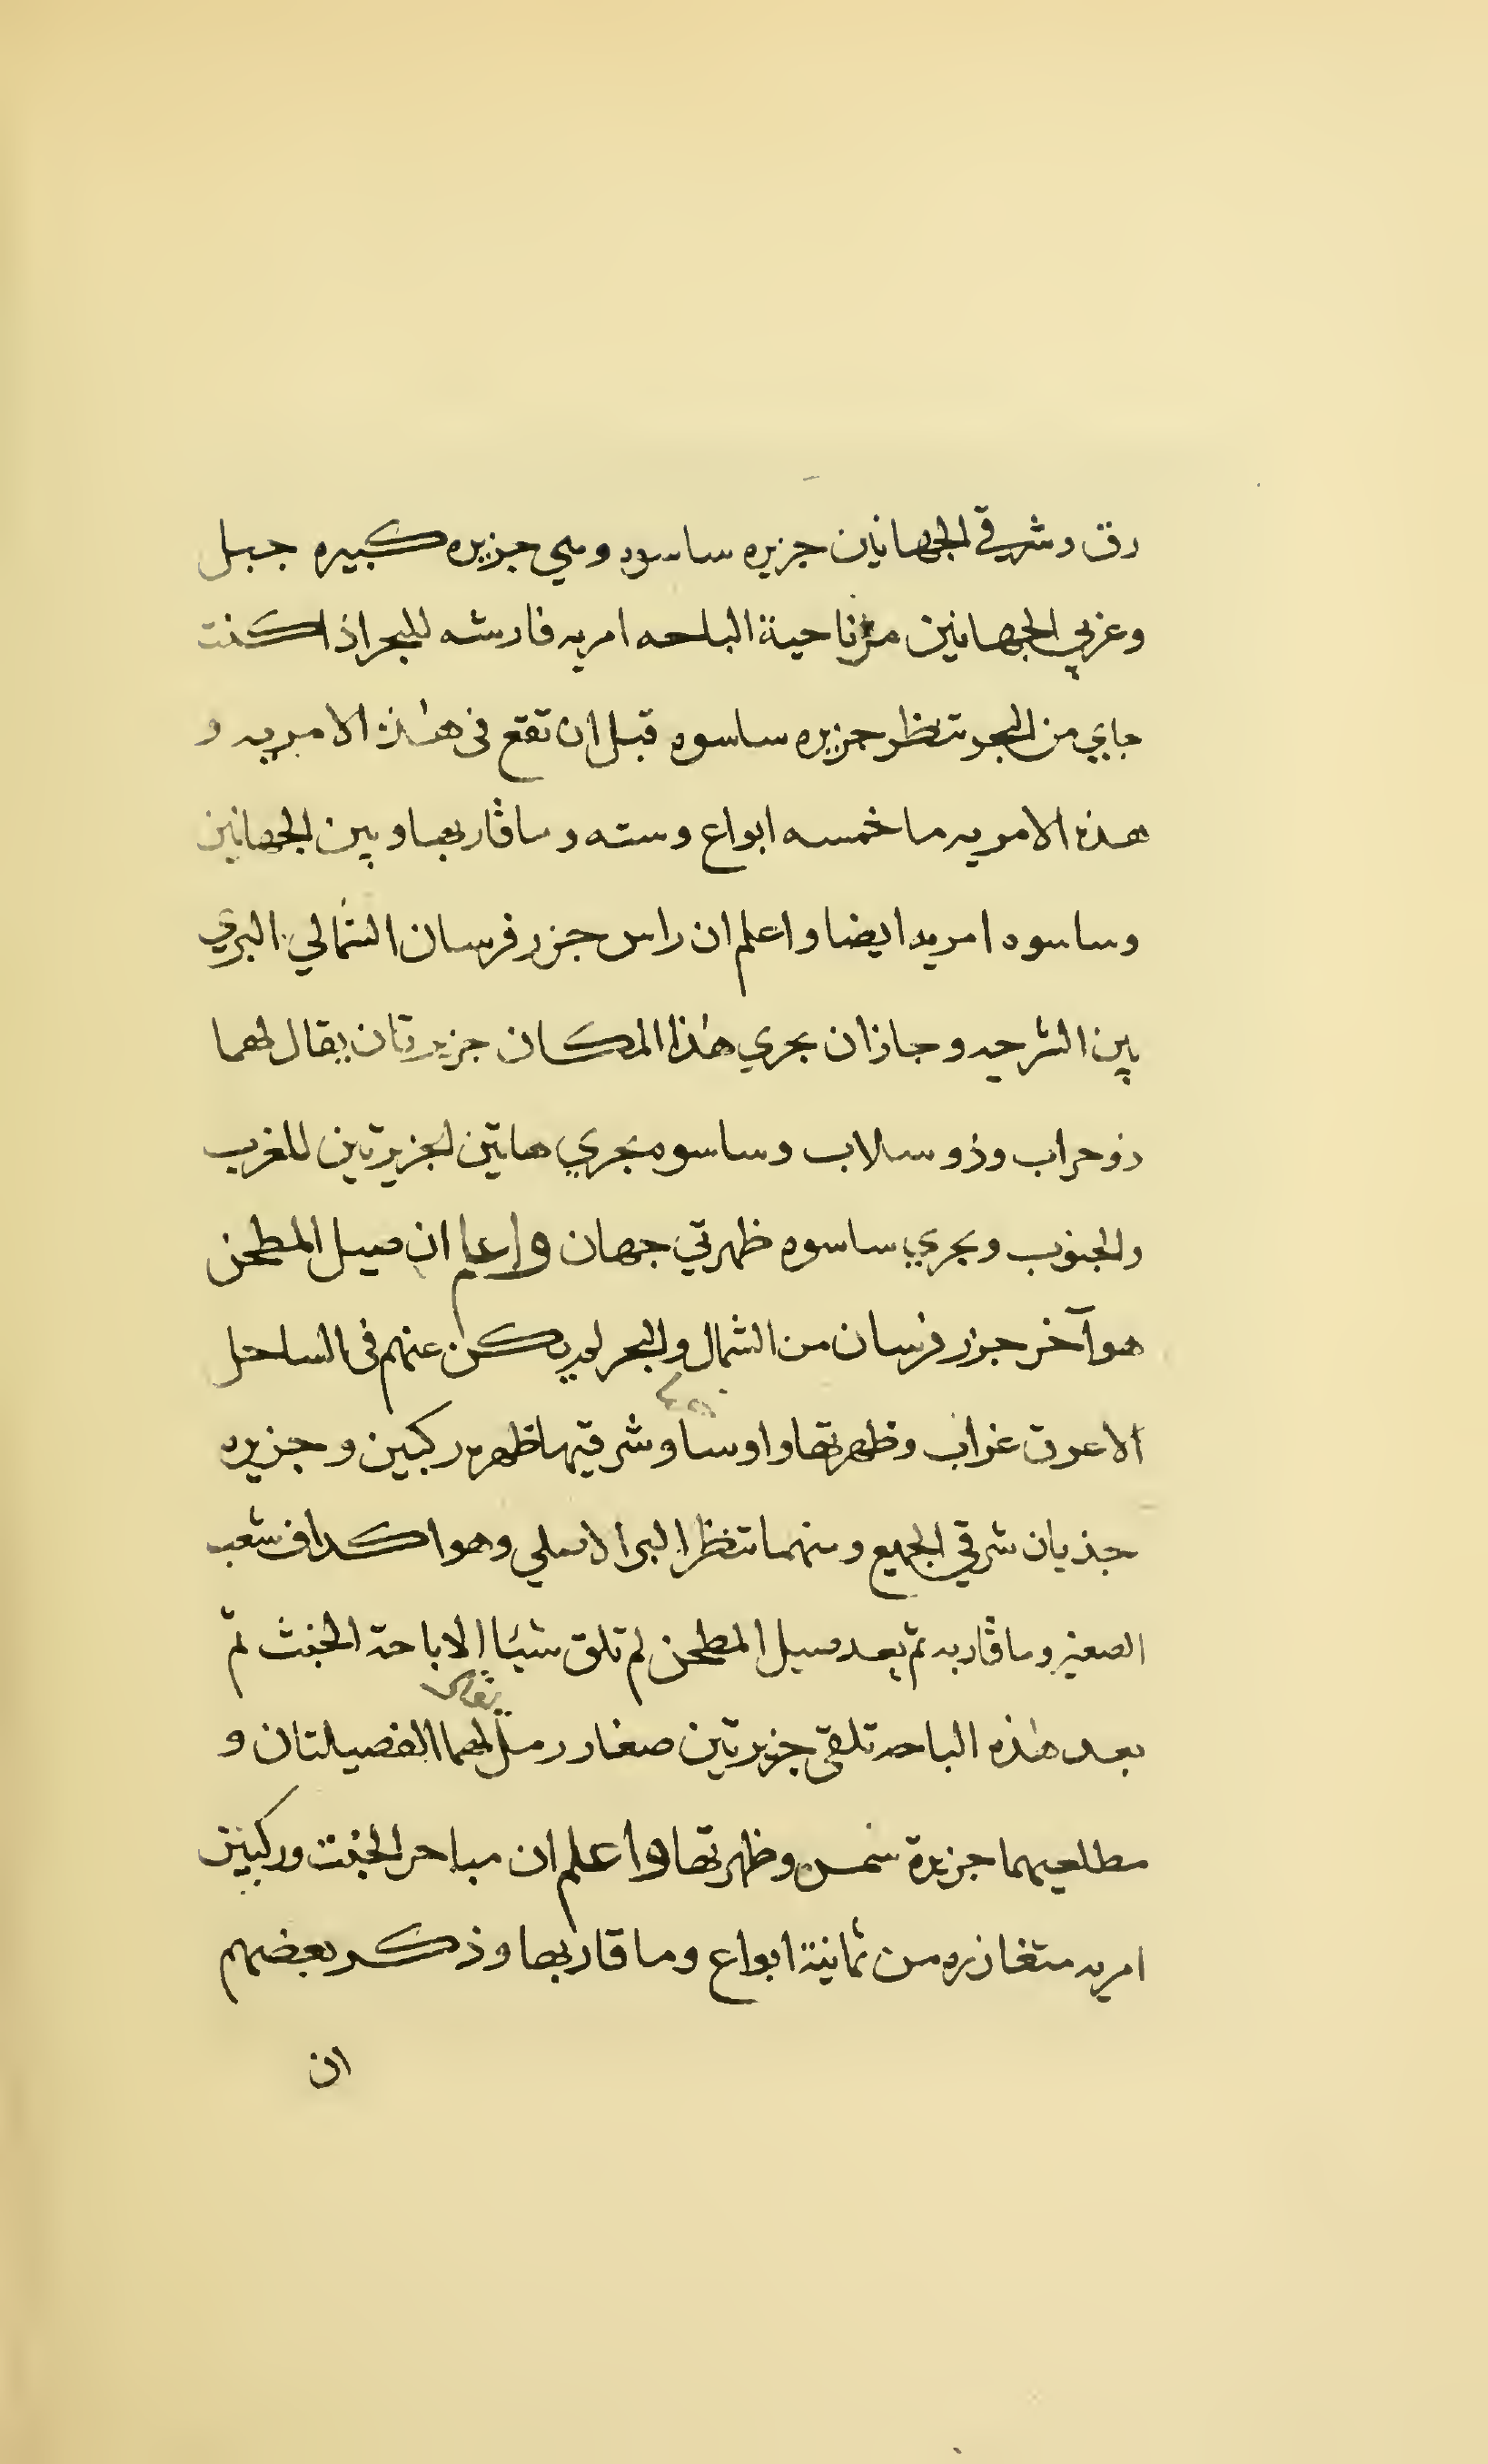 رق وشرقي الجهانين جزيره ساسوه وهي جزيره كبيره جبل
وغربي الجهانين من ناحية الباحه امريه فارشه للبحر اذا كنت
جاي من البحر تنظر جزيره ساسوه قبل ان تقع في هذه الامريه و
هذه الامريه ما خمسه ابواع وسته وما قاربها وبين الجهانين
وساسوه امريه ايضا واعلم ان راس جزر فرسان الشمالي البري
بين الشرجه وجازان بحري هذا المكان جزيرتان يقال لهما
ذو حراب وذو سلاب وساسوه بحري هاتين الجزيرتين للغرب
والجنوب وبحري ساسوه ظهرتي جهان واعلم ان صيل المطحن
هو آخر جزر فرسان من الشمال والبحر لم يكن عنهم في الساحل
الا عرق غراب وظهرتها واوسا وشرقيها ظهره ركبين وجزيره
جذيان شرقي الجميع ومنهما تنظر البر الاصلي وهو اكداف شعب
الصغير وما قاربه ثم بعد صيل المطحن لم تلق شيئا الا باحة الخبث ثم
بعد هذه الباحه تلقى جزيرتين صغار رمل يقال لهما الفصيلتان و
مطلعيهما جزيرة شمس وظهرتها واعلم ان مباحر الخبت وركبين
امريه متغازره من ثمانية ابواع وما قاربها وذكر بعضهم
ان